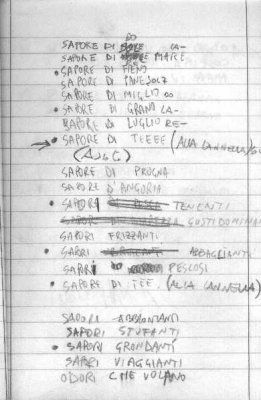 DO
SAPORE DI SOLE LA-
SAPORE DI MARE
• SAPORE DI FIENO
SAPORE DI
SAPORE DI MIGLIO
• SAPORE DI GRANO LA-
SAPORE DI LUGLIO RE-
→ • SAPORE DI TEEEE (ALLA CANNELLA)
SAPORE DI PRUGNA
SAPORE D'ANGURIA
• SAPORI TENENTI
GUSTI DOMINANTI
SAPORI FRIZZANTI
• SAPORI ABBAGLIANTI
SAPORI PESCOSI
• SAPORE DI TEE. (ALLA CANNELLA)
SAPORI ABBRONZANTI
SAPORI STUFANTI
• SAPORI GRONDANTI
SAPORI VIAGGIANTI
ODORI CHE VOLANO